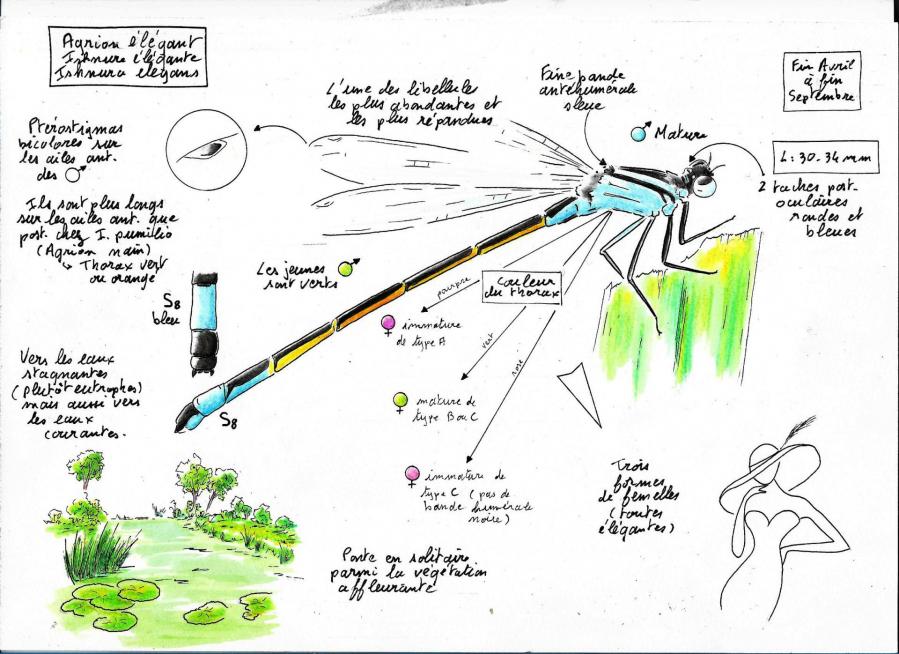 Agrion élégant
Ishnure élégante
Ishnura elegans
L'une des libellules
les plus abondantes et
les plus répandues
Fine bande
antéhumérale
bleue
Fin Avril
à fin
Septembre
♂ Mature
L: 30-34 mm
2 taches post-
oculaires
rondes et
bleues
Ptérostigmas
bicolores sur
les ailes ant.
des ♂
Ils sont plus longs
sur les ailes ant. que
post. chez I. pumilio
(Agrion nain)
↳ Thorax vert
ou orangé
S8
bleu
Les jeunes ♂
sont verts
couleur
du thorax
pourpre
♀ immature
de type A
vert
♀ mature de
type B ou C
rose
♀ immature de
type C (pas de
bande humérale
noire)
S8
Vers les eaux
stagnantes
(plutôt eutrophes)
mais aussi vers
les eaux
courantes.
Ponte en solitaire
parmi la végétation
affleurante
Trois
formes
de femelles
(toutes
élégantes)